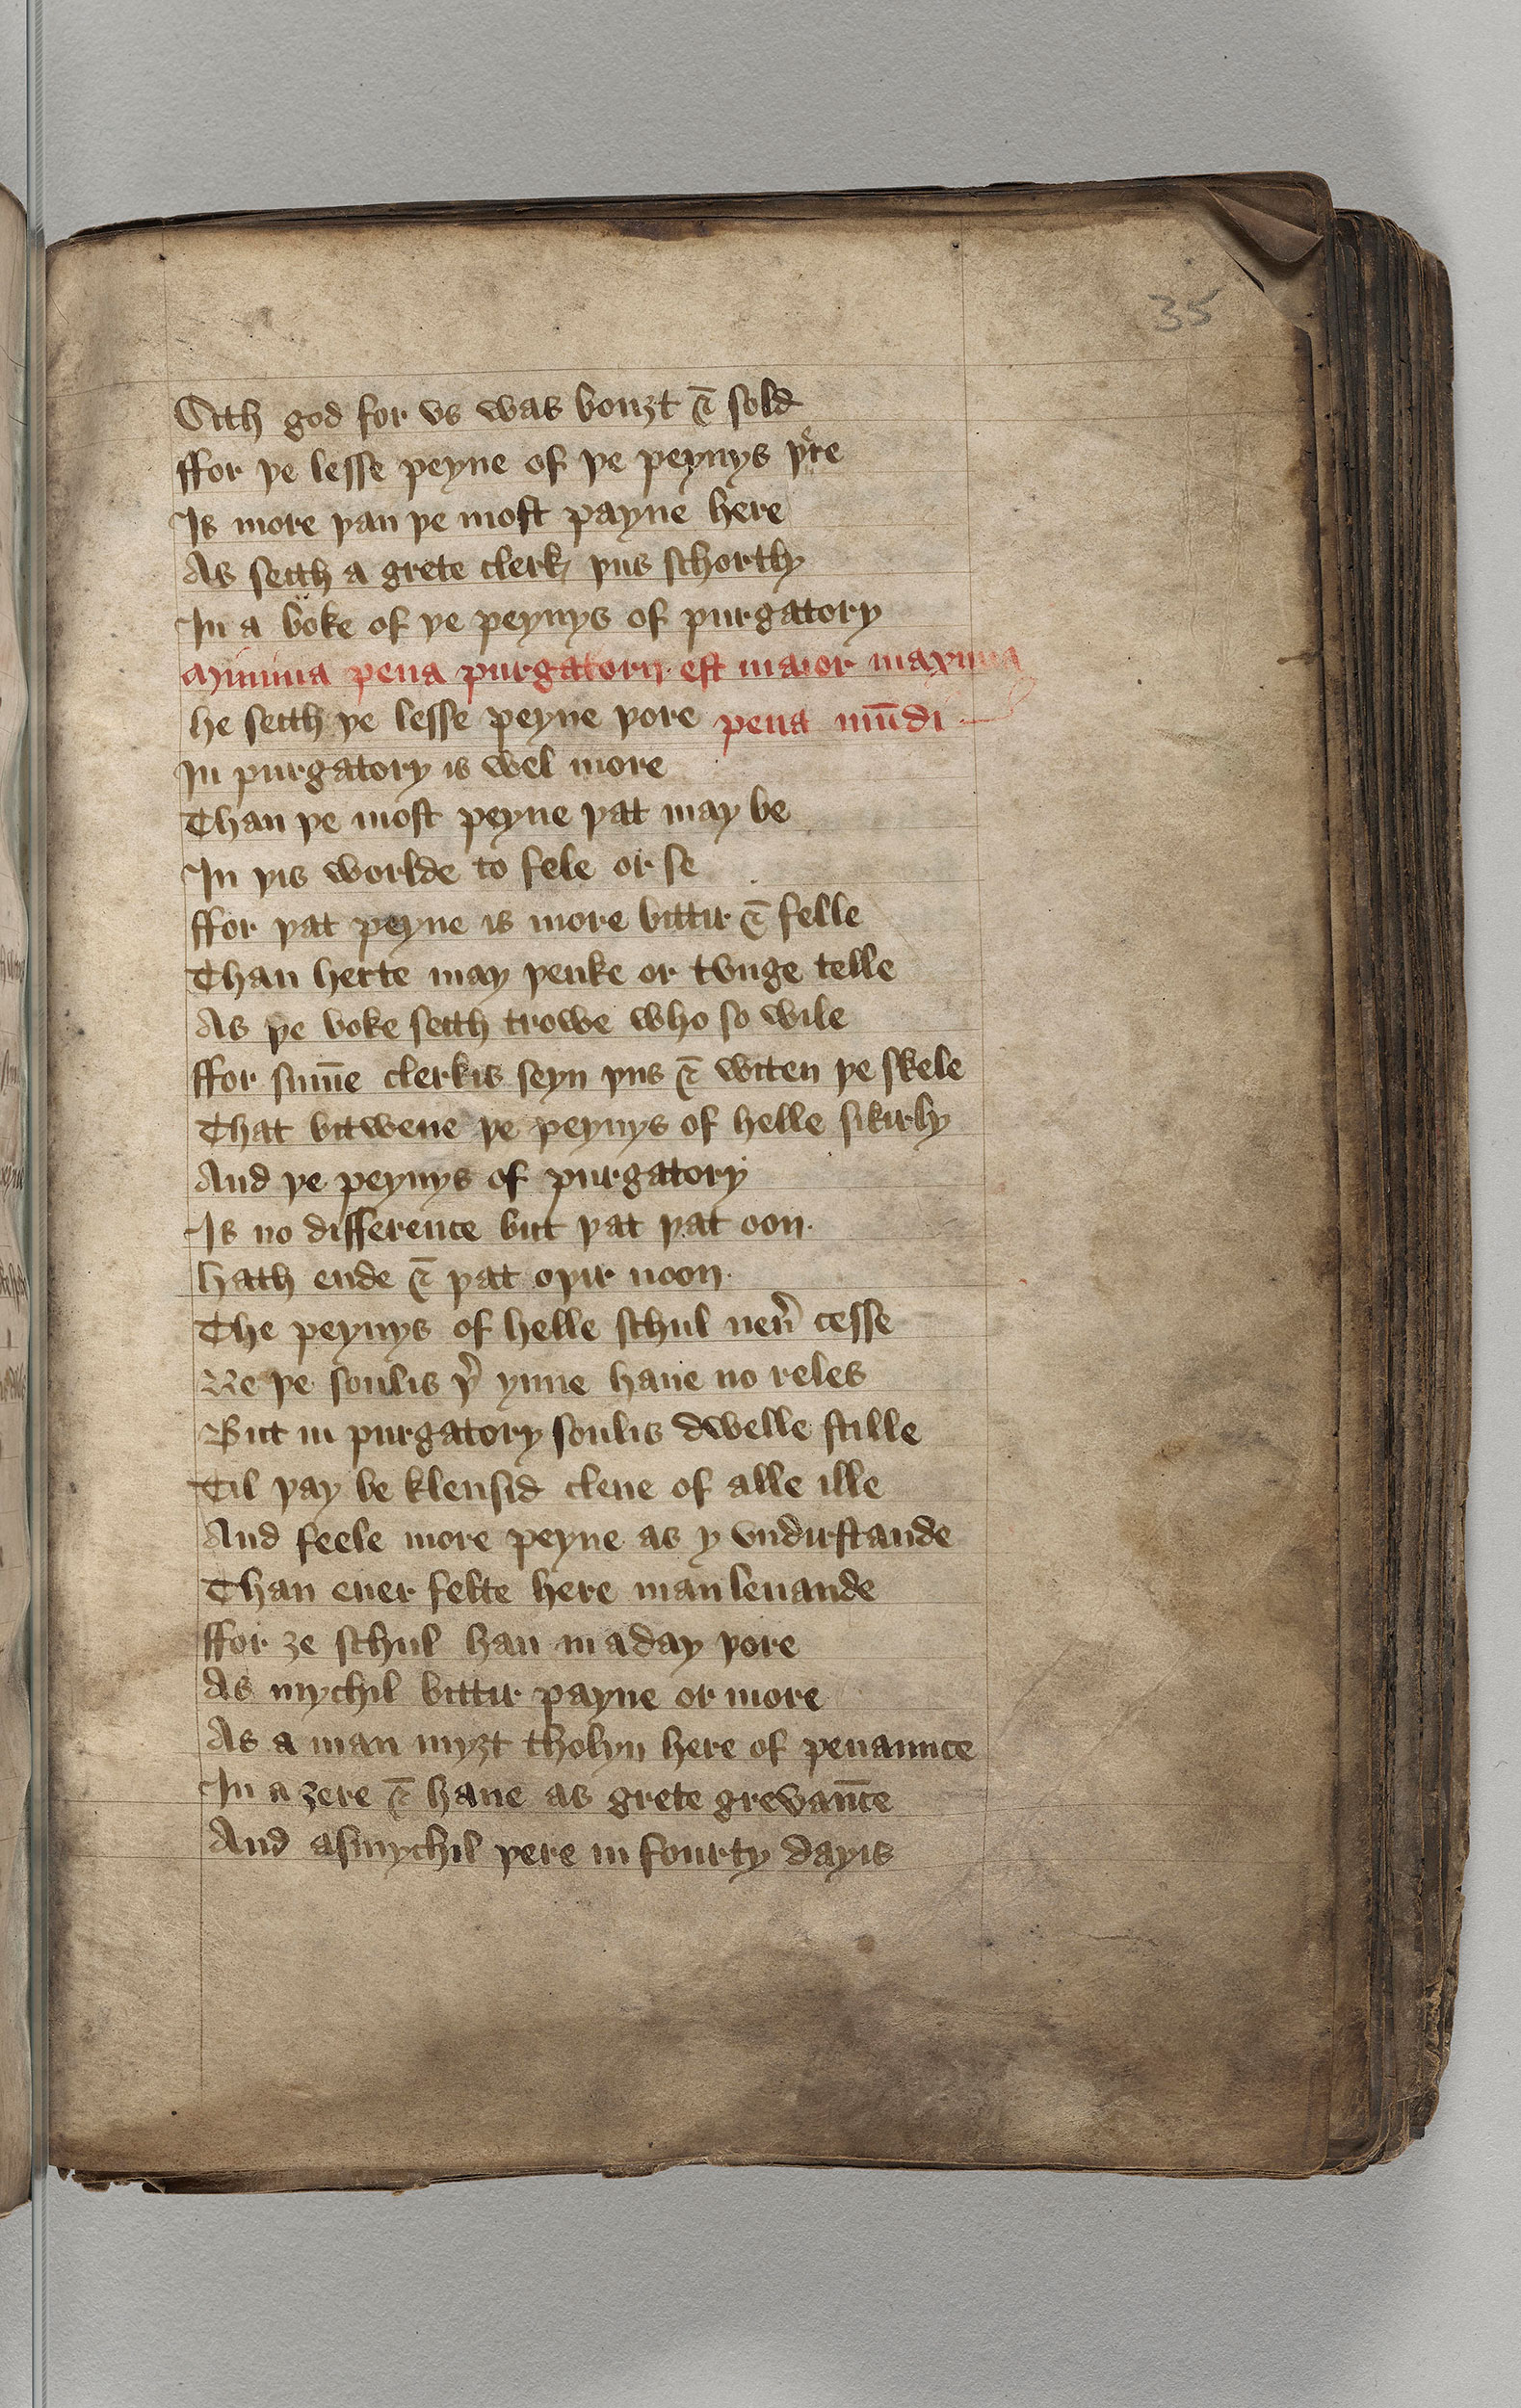 35
Sith god for vs was bouȝt ⁊ sold
ffor þe lesse peyne of þe peynys þ'e
Is more þan þe most payne here
As seith a grete clerk þus schortly
In a boke of þe peynys of purgatory
Minima pena purgatorij est maior maxima
pena mūdi
he seith þe lesse peyne þore
In purgatory is wel more
Than þe most peyne þat may be
In þis worlde to fele or se
ffor þat peyne is more bittir ⁊ felle
Than herte may þenke or tvnge telle
As þe boke seith trowe who so wile
ffor sum̄e clerkis seyn þus ⁊ witen þe skele
That bitwene þe peynys of helle sikirly
And þe peynys of purgatory
Is no difference but þat þat oon.
hath ende ⁊ þat oþir noon.
The peynys of helle schul neu̾ cesse
Ne þe soulis þ̾ ynne haue no reles
But in purgatory soulis dwelle stille
Til þay be klensid clene of alle ille
And feele more peyne as y vndirstande
Than euer felte here man leuande
ffor ȝe schul han in a day þore
As mychil bittir payne or more
As a man myȝt tholyn here of penaunce
In a ȝere ⁊ haue as grete grevan̄ce
And asmychil þere in fourty dayis